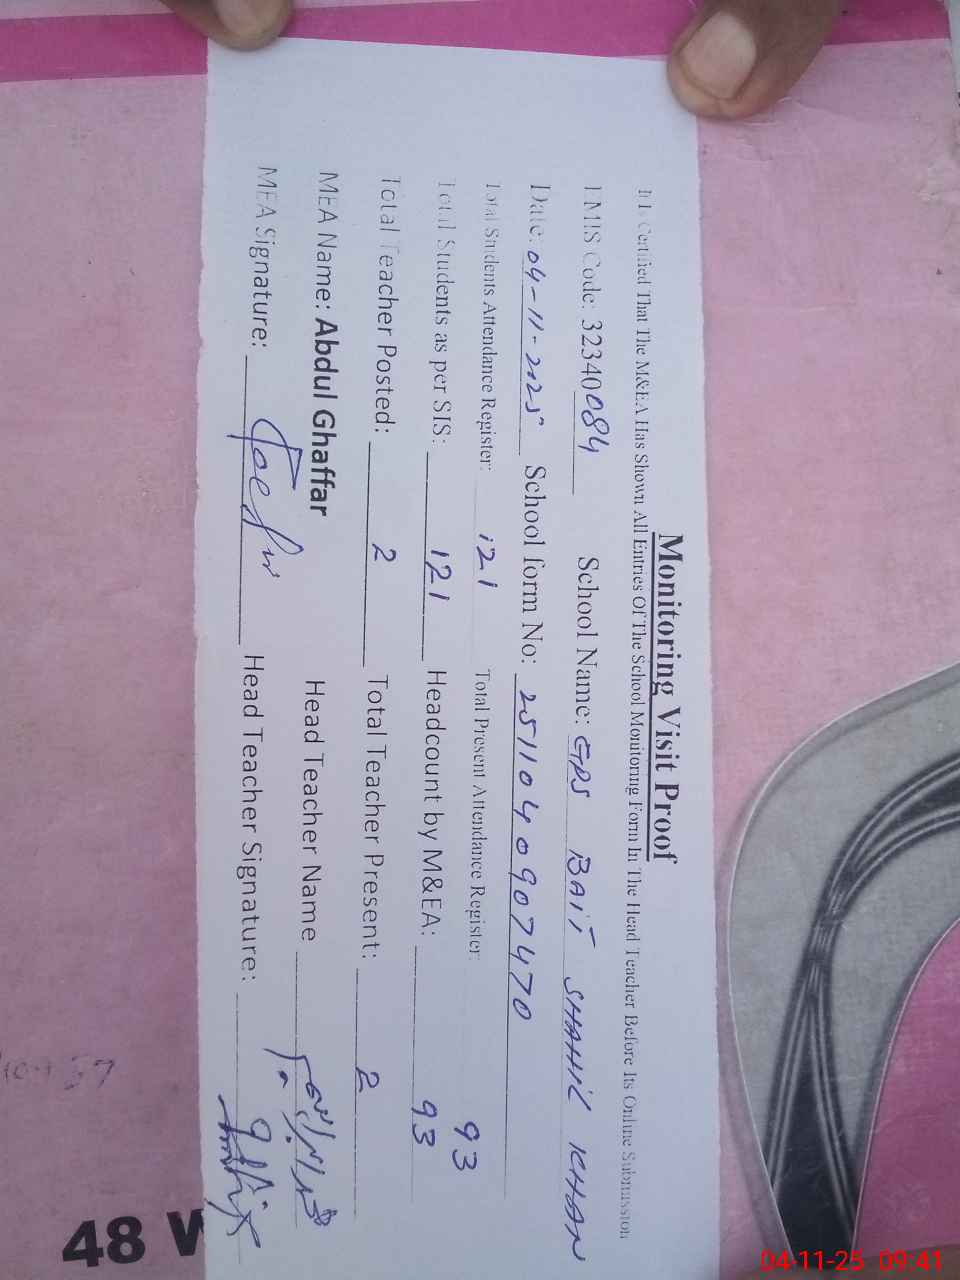 Monitoring Visit Proof
It Is Certified That The M&EA Has Shown All Entries Of The School Monitoring Form In The Head Teacher Before Its Online Submission
EMIS Code: 32340084 School Name: GPS BAIT SHAHIL KHAN
Date: 04-11-2025 School form No: 2511040907470
Total Students Attendance Register: 121 Total Present Attendance Register: 93
Total Students as per SIS: 121 Headcount by M&EA: 93
Total Teacher Posted: 2 Total Teacher Present: 2
MEA Name: Abdul Ghaffar Head Teacher Name
MEA Signature: Head Teacher Signature:
48 W
04-11-25 09:41